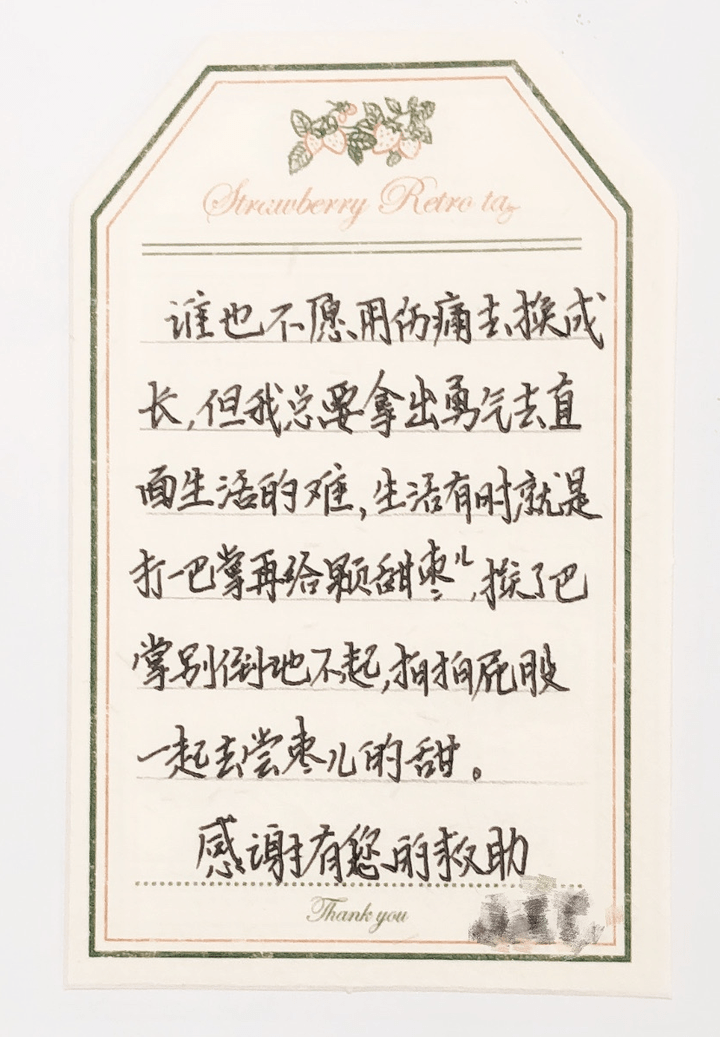 Strawberry Retro tag
谁也不愿用伤痛去换成
长,但我总要拿出勇气去直
面生活的难,生活有时就是
打一巴掌再给颗甜枣儿,挨了巴
掌别倒地不起,拍拍屁股
一起去尝枣儿的甜。
感谢有您的救助
Thank you